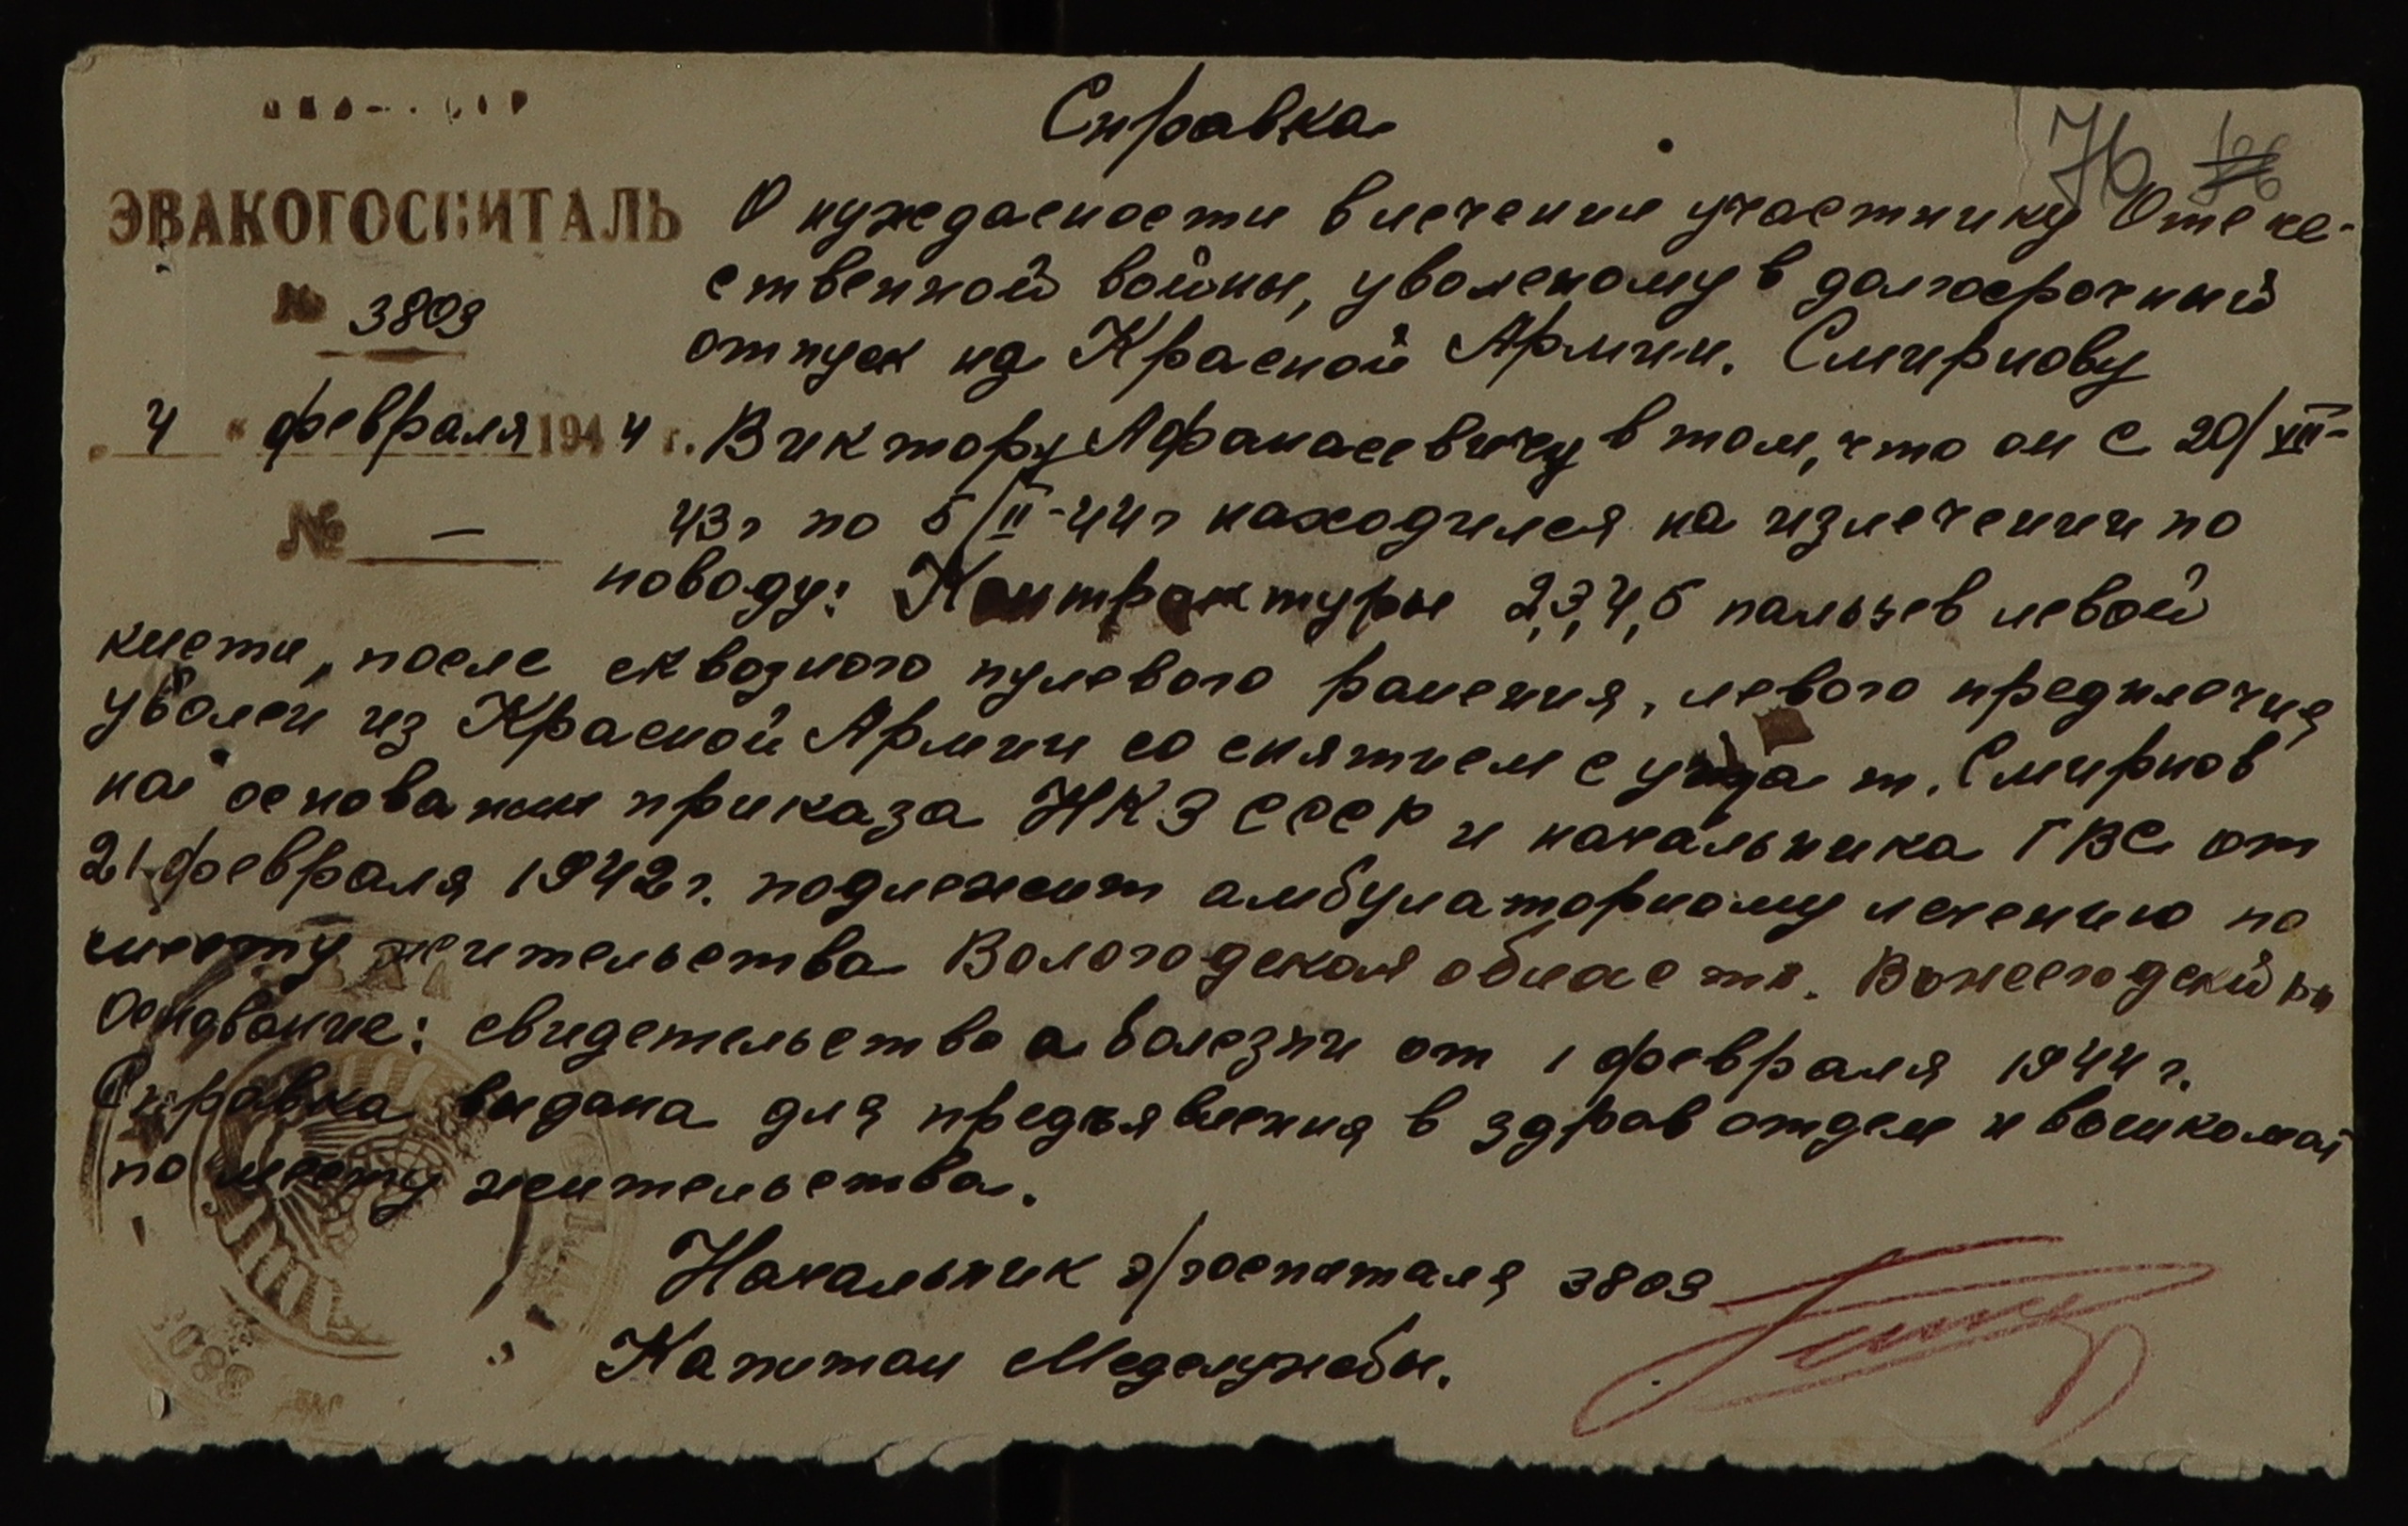 Справка
76
ЭВАКОГОСПИТАЛЬ
№ 3803
4 " февраля 1944 г.
№ —
О нуждаемости в лечении участнику Отече-
ственной войны, уволеному в долгосрочный
отпуск из Красной Армии. Смирнову
Виктору Афанасевичу в том, что он с 20/XII-
43г по 5/II-44г находился на излечении по
поводу: Контрактуры 2,3,4,5 пальцев левой
кисти, после сквозного пулевого ранения, левого предплечия
уволен из Красной Армии со снятием с учета т. Смирнов
на основании приказа НКЗ СССР и начальника ГВС от
21 февраля 1942г. подлежит амбулаторному лечению по
месту жительства Вологодская область. Вожегодский рн
Основание: свидетельство о болезни от 1 февраля 1944 г.
Справка выдана для предъявления в здравотдел и военкомат
по месту жительства.
Начальник э/госпиталя 3803
Капитан Медслужбы.